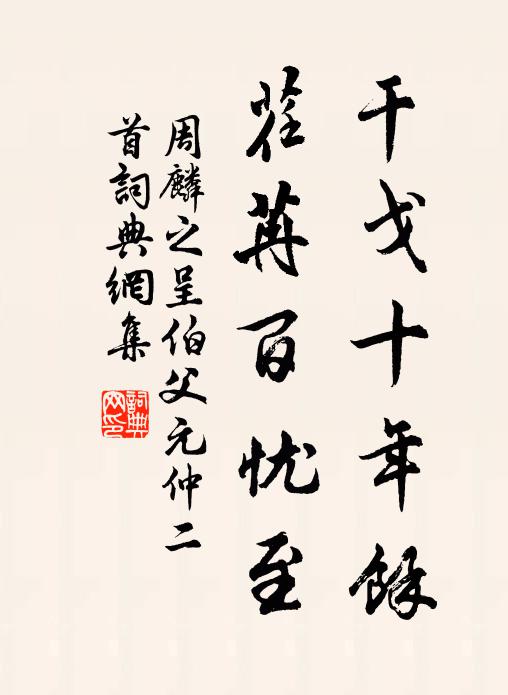 干戈十年餘
荏苒百忧至
周麟之呈伯父元仲二
首詞典網集
詞典网印